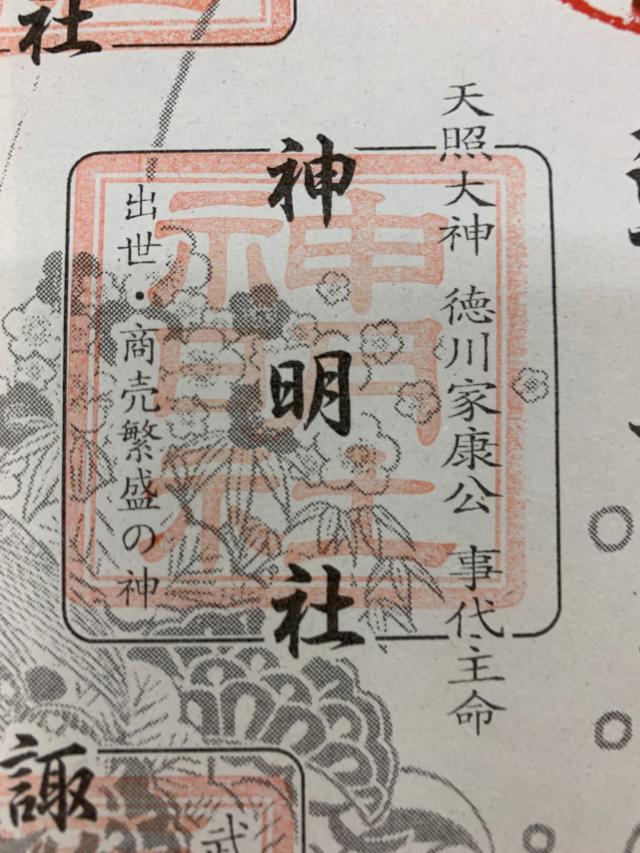 社
天照大神 徳川家康公 事代主命
神明社
出世・商売繁盛の神
諏
武